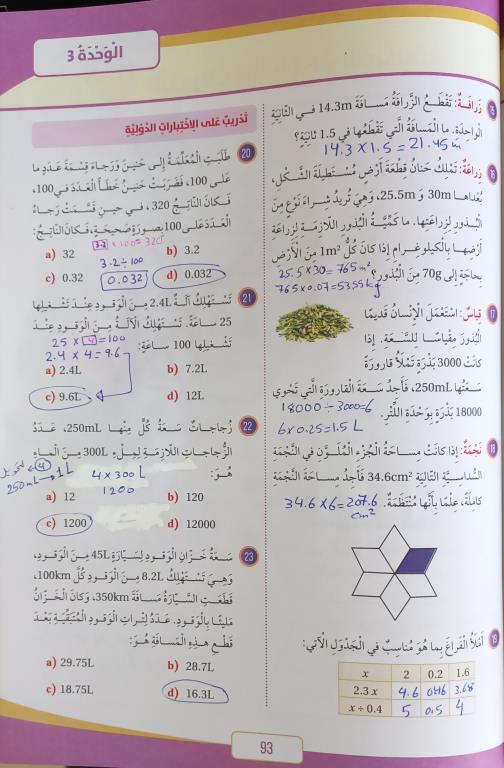 الْوَحْدَةُ 3
15 زَرافَةٌ: تَقْطَعُ الزَّرافَةُ مَسافَةَ 14.3m في الثّانِيَةِ
الْواحِدَةِ. ما الْمَسافَةُ الَّتي تَقْطَعُها في 1.5 ثانِيَةٍ؟
14.3 x 1.5 = 21.45 m
16 زِراعَةٌ: تَمْلِكُ حَنانُ قِطْعَةَ أَرْضٍ مُسْتَطيلَةَ الشَّكْلِ،
بُعْداها 30m وَ 25.5m، وَهِيَ تُريدُ شِراءَ نَوْعٍ مِنَ
الْبُذورِ لِزِراعَتِها. ما كَمِّيَّةُ الْبُذورِ اللّازِمَةِ لِزِراعَةِ
أَرْضِها بِالْكيلوغَرامِ إذا كانَ كُلُّ 1m² مِنَ الْأَرْضِ
بِحاجَةٍ إِلى 70g مِنَ الْبُذورِ؟
25.5 x 30 = 765 m²
765 x 0.07 = 53.55 kg
17 قِياسٌ: اسْتَعْمَلَ الْإِنْسانُ قَديمًا
الْبُذورَ مِقْياسًا لِلسَّعَةِ. إذا
كانَتْ 3000 بَذْرَةٍ تَمْلَأُ قارورَةً
سَعَتُها 250mL، فَأَجِدُ سَعَةَ الْقارورَةِ الَّتي تَحْوي
18000 بَذْرَةٍ بِوَحْدَةِ اللِّتْرِ.
18000 ÷ 3000 = 6
6 x 0.25 = 1.5 L
18 نَجْمَةٌ: إذا كانَتْ مِساحَةُ الْجُزْءِ الْمُلَوَّنِ في النَّجْمَةِ
السُّداسِيَّةِ التّالِيَةِ 34.6cm² فَأَجِدُ مِساحَةَ النَّجْمَةِ
كامِلَةً، عِلْمًا بِأَنَّها مُنْتَظِمَةٌ.
34.6 x 6 = 207.6
cm²
19 أَمْلَأُ الْفَراغَ بِما هُوَ مُناسِبٌ في الْجَدْوَلِ الْآتي:
x 2 0.2 1.6
2.3 x 4.6 0.46 3.68
x ÷ 0.4 5 0.5 4
تَدْريبٌ عَلى الِاخْتِباراتِ الدَّوْلِيَّةِ
20 طَلَبَتِ الْمُعَلِّمَةُ إِلى حَنينَ وَرَجاءَ قِسْمَةَ عَدَدٍ ما
عَلى 100، فَضَرَبَتْ حَنينُ خَطَأً الْعَدَدَ في 100،
فَكانَ النّاتِجُ 320، في حينِ قَسَّمَتْ رَجاءُ
الْعَدَدَ عَلى 100 بِصورَةٍ صَحيحَةٍ، فَكانَ النّاتِجُ:
3.2 x 100 = 320
a) 32 b) 3.2
3.2 ÷ 100
c) 0.32 0.032 d) 0.032
21 تَسْتَهْلِكُ آلَةٌ 2.4L مِنَ الْوَقودِ عِنْدَ تَشْغيلِها
25 ساعَةً. تَسْتَهْلِكُ الْآلَةُ مِنَ الْوَقودِ عِنْدَ
تَشْغيلِها 100 ساعَةٍ:
25 x 4 = 100
2.4 x 4 = 9.6
a) 2.4L b) 7.2L
c) 9.6L d) 12L
22 زُجاجاتٌ سَعَةُ كُلٍّ مِنْها 250mL، عَدَدُ
الزُّجاجاتِ اللّازِمَةِ لِمِلْءِ 300L مِنَ الْماءِ
هُوَ:
4
250 mL → 1 L
4 x 300 L
1200
a) 12 b) 120
c) 1200 d) 12000
23 سَعَةُ خَزّانِ الْوَقودِ لِسَيّارَةٍ 45L مِنَ الْوَقودِ،
وَهِيَ تَسْتَهْلِكُ 8.2L مِنَ الْوَقودِ كُلَّ 100km،
قَطَعَتِ السَّيّارَةُ مَسافَةَ 350km، وَكانَ الْخَزّانُ
مَليئًا بِالْوَقودِ. عَدَدُ لِتْراتِ الْوَقودِ الْمُتَبَقِّيَةِ بَعْدَ
قَطْعِ هذِهِ الْمَسافَةِ هُوَ:
a) 29.75L b) 28.7L
c) 18.75L d) 16.3L
93